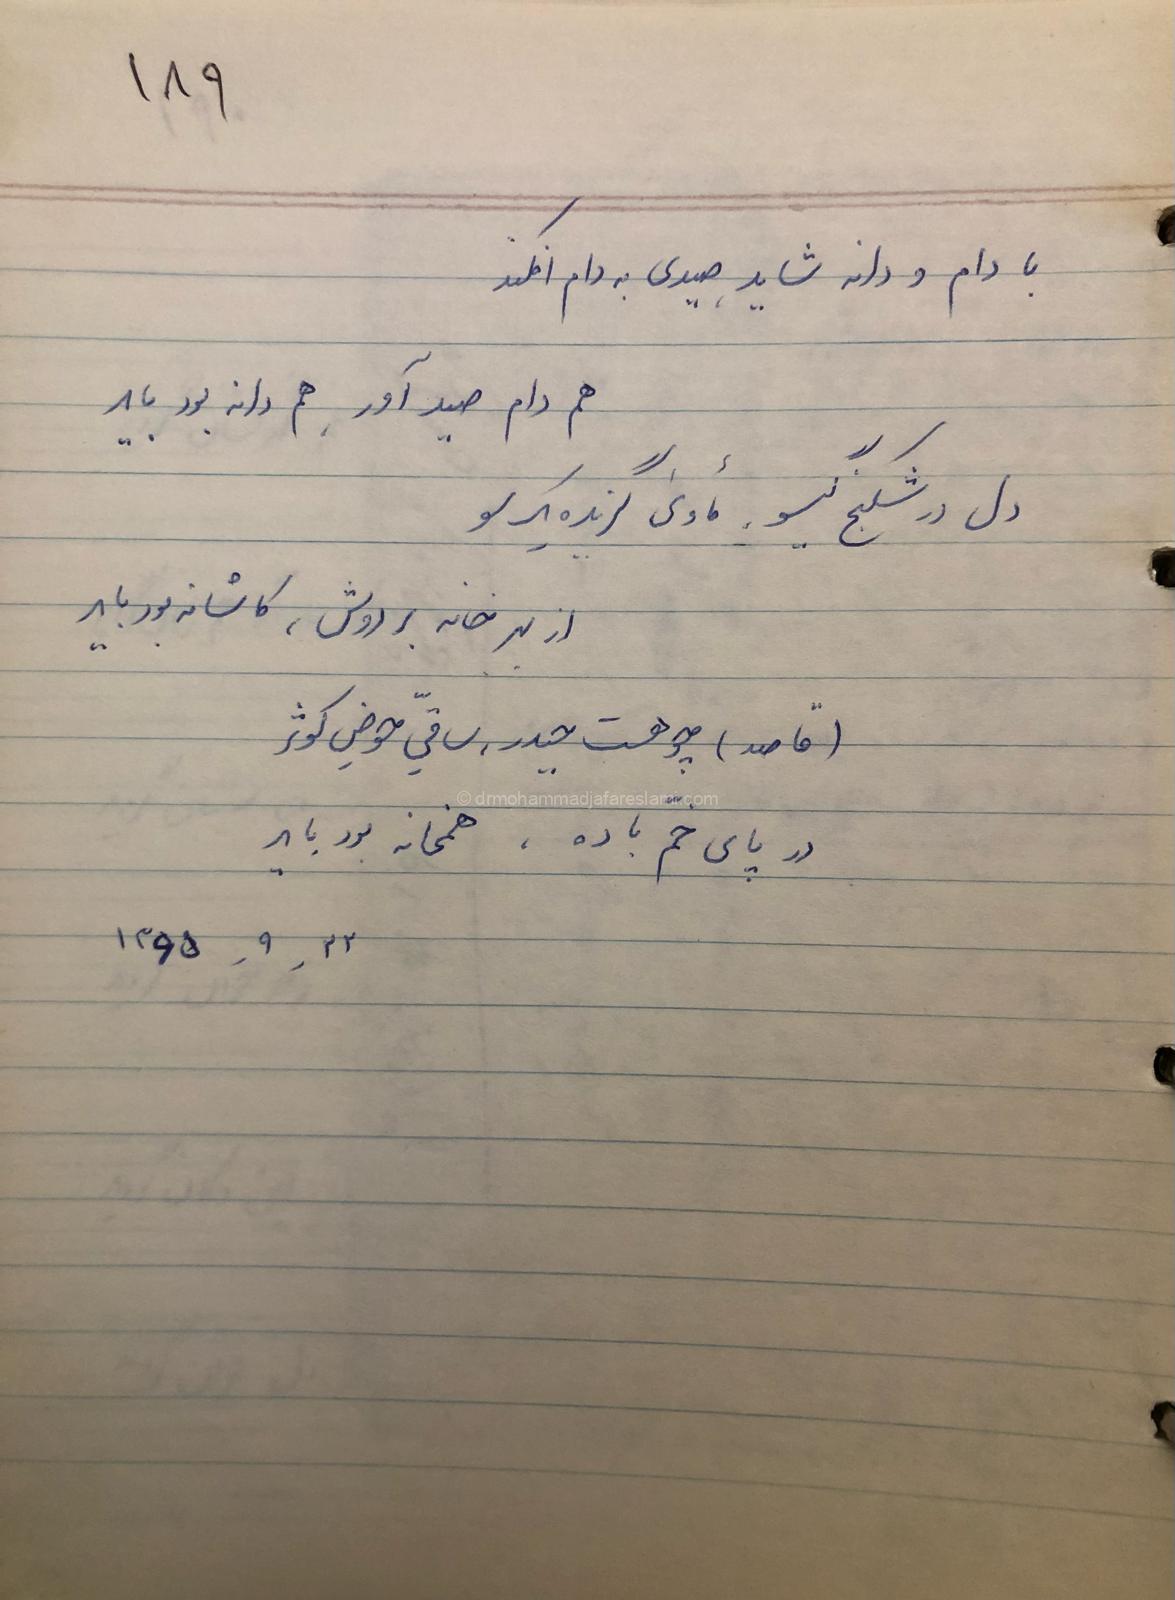 ۱۸۹
با دام و دانه شاید، صیدی به دام افکند
هم دام صید آور، هم دانه بود باید
دل در شکنج گیسو، مأوی گزیده یکسو
از بهر خانه بر دوش، کاشانه بود باید
(قاصد) چو هست حیدر، ساقیِّ حوضِ کوثر
© drmohammadjafareslami.com
در پای خمّ باده، همخانه بود باید
۲۲ر ۹ر ۱۳۶۵